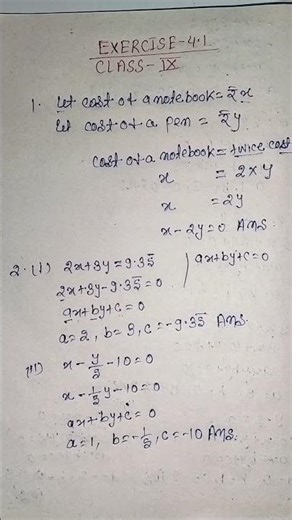 EXERCISE-4.1
CLASS-IX
1. Let cost of a notebook = ₹ x
Let cost of a pen = ₹ y
cost of a notebook = twice cost
x = 2 × y
x = 2y
x - 2y = 0 Ans.
2. (i) 2x+3y = 9.35̅ | ax+by+c=0
2x+3y-9.35̅=0
ax+by+c=0
a=2, b=3, c=-9.35̅ Ans.
(ii) x - y/5 - 10=0
x - 1/5 y - 10=0
ax+by+c=0
a=1, b=-1/5, c=-10 Ans.